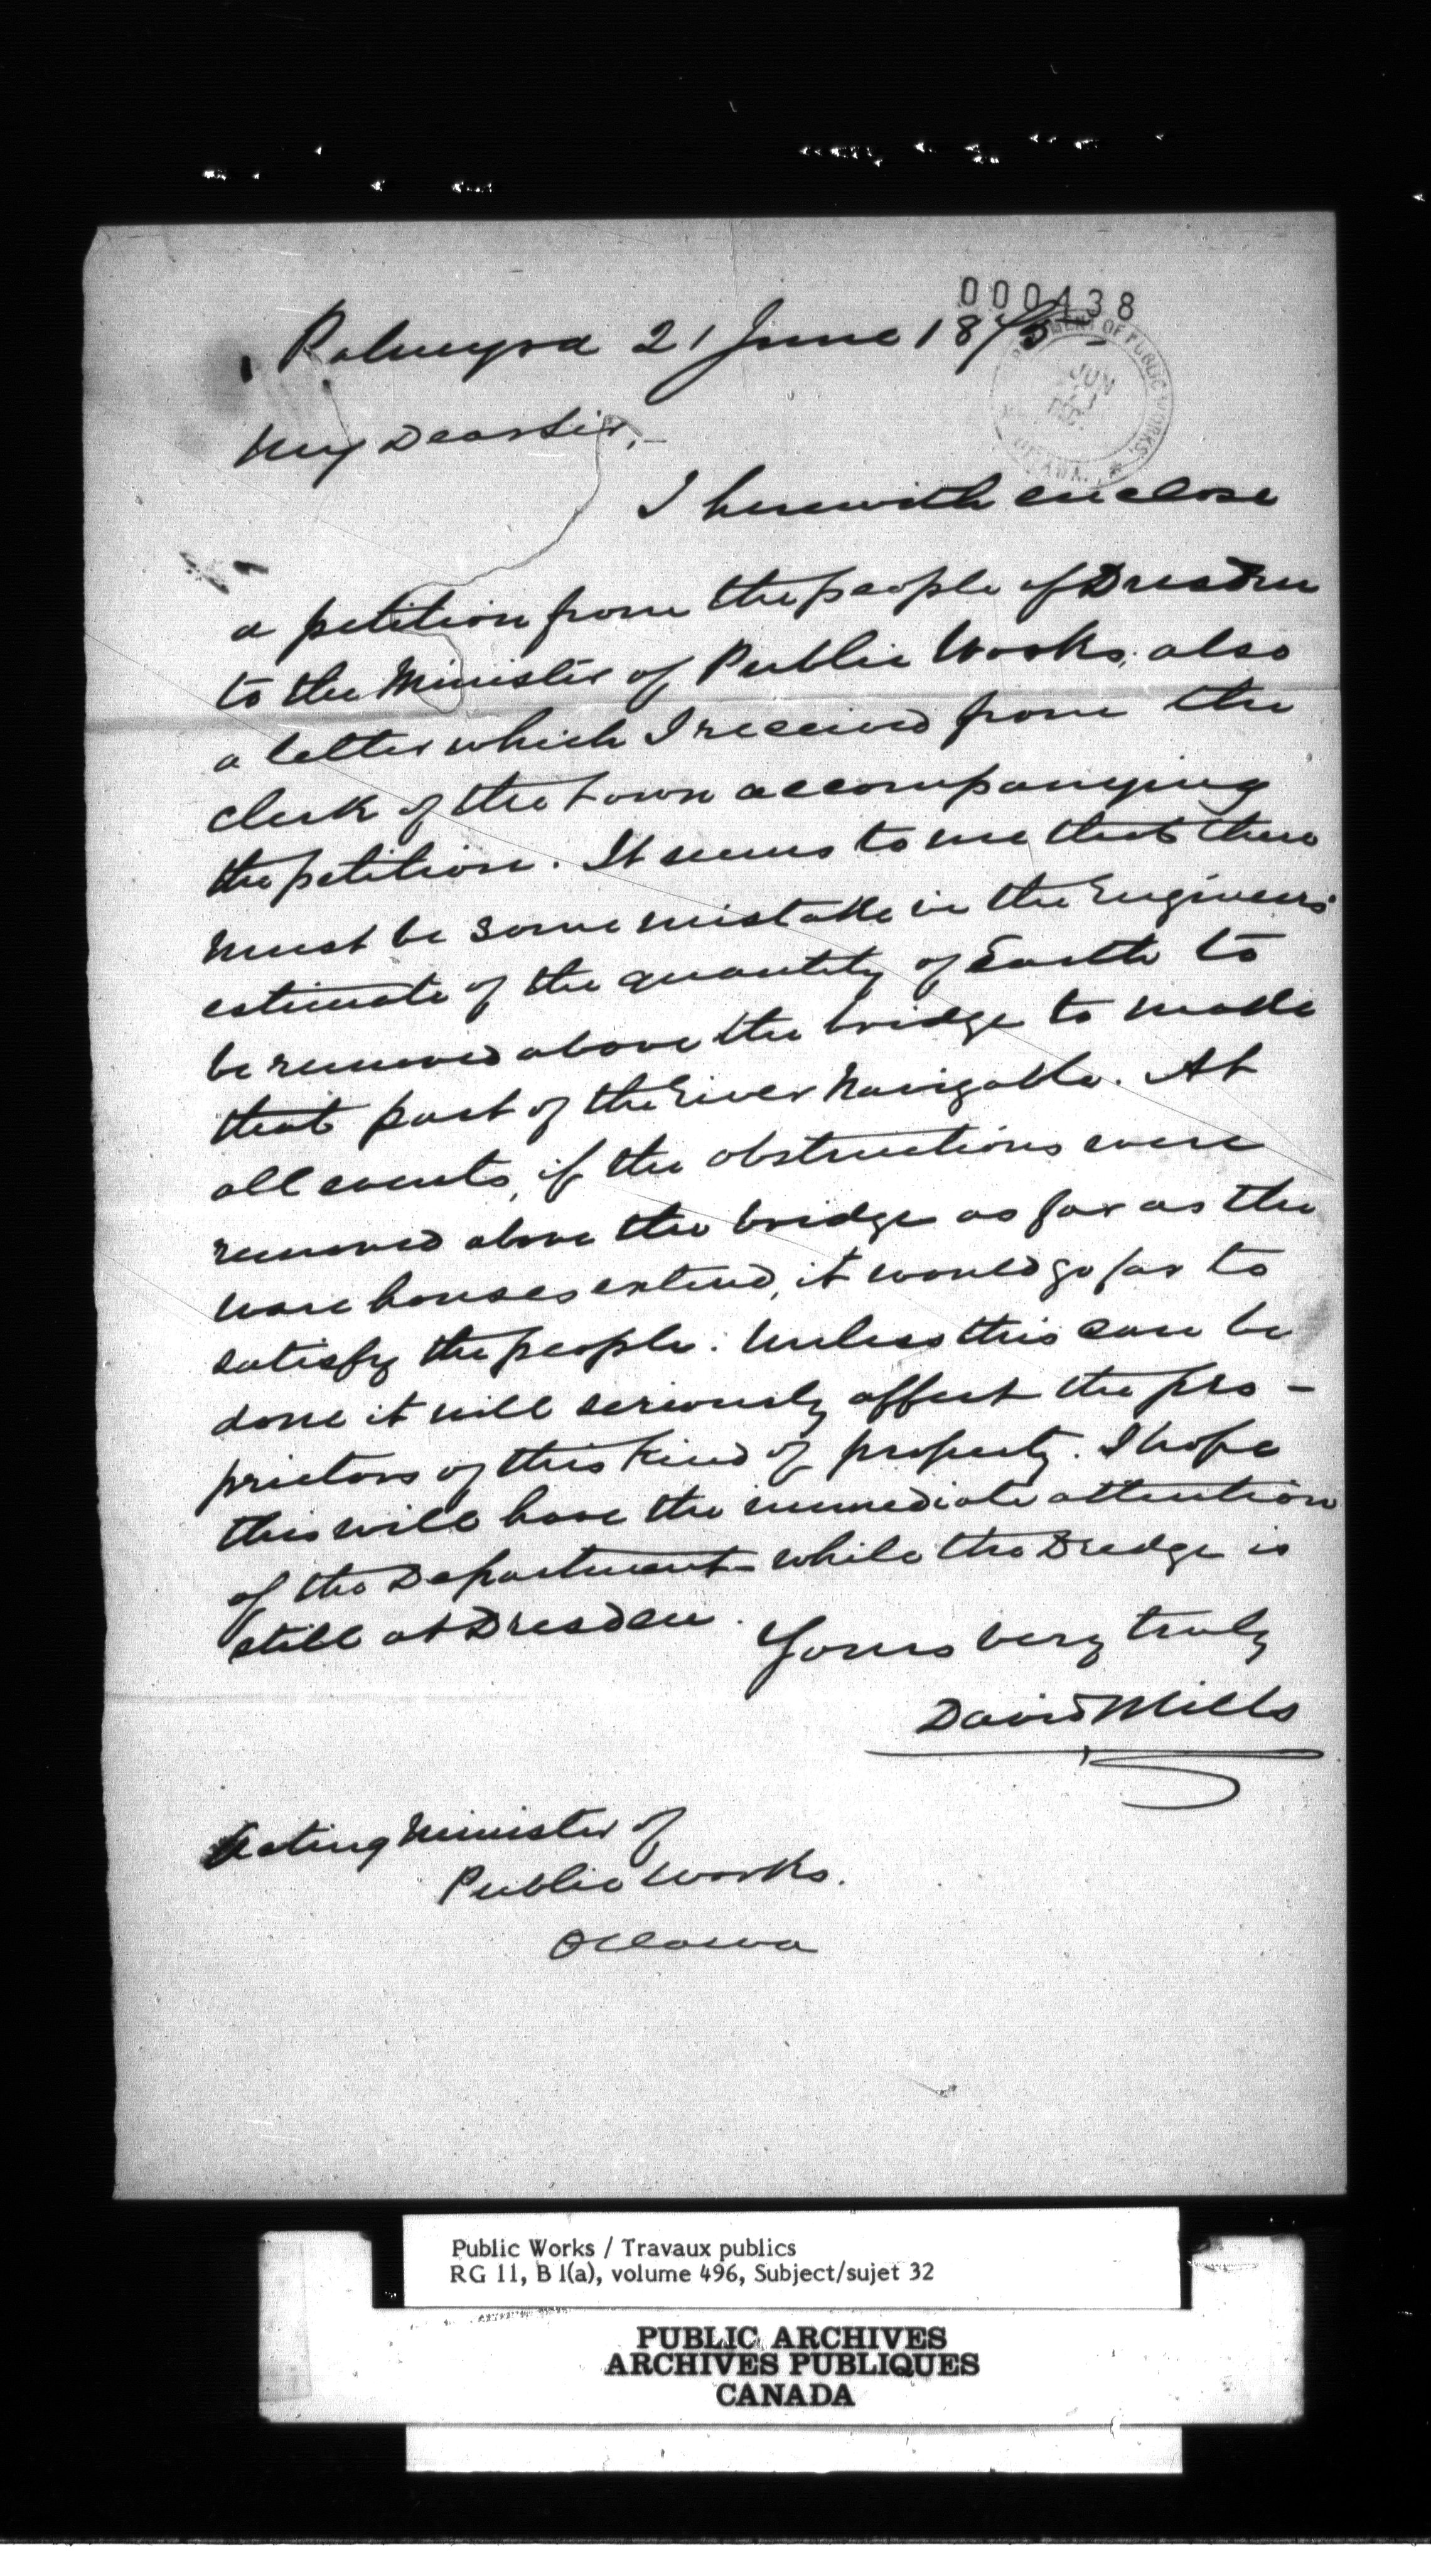 000438
Palmyra 21 June 1875
DEPARTMENT OF PUBLIC WORKS.
JUN
23
REC.
My Dear Sir,–
I herewith enclose
a petition from the people of Dresden
to the Minister of Public Works, also
a letter which I received from the
clerk of the town accompanying
the petition. It seems to me that there
must be some mistake in the Engineers'
estimate of the quantity of Earth to
be removed above the bridge to make
that part of the river navigable. At
all events, if the obstructions were
removed above the bridge as far as the
ware houses extend, it would go far to
satisfy the people. Unless this can be
done it will seriously affect the pro-
prietors of this kind of property. I hope
this will have the immediate attention
of the Department while the Dredge is
still at Dresden.
Yours very truly
David Mills
Acting Minister of
Public Works.
Ottawa
Public Works / Travaux publics
RG 11, B 1(a), volume 496, Subject/sujet 32
PUBLIC ARCHIVES
ARCHIVES PUBLIQUES
CANADA